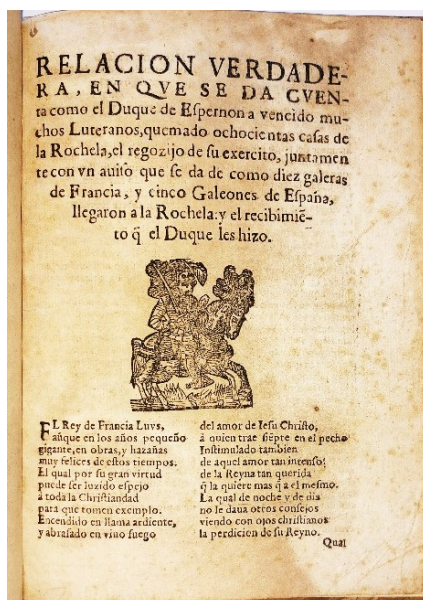 RELACION VERDADE-
RA, EN QVE SE DA CVEN-
ta como el Duque de Espernon a vencido mu-
chos Luteranos, quemado ochocientas casas de
la Rochela, el regozijo de su exercito, juntamen
te con vn auiso que se da de como diez galeras
de Francia, y cinco Galeones de España,
llegaron a la Rochela: y el recibimiẽ-
to q̃ el Duque les hizo.
EL Rey de Francia Luys,
aũque en los años pequeño
gigante, en obras, y hazañas
muy felices de estos tiempos.
El qual por su gran virtud
puede ser luzido espejo
à toda la Christiandad
para que tomen exemplo.
Encendido en llama ardiente,
y abrasado en viuo fuego
del amor de Iesu Christo,
à quien trae siẽpte en el pecho
Instimulado tambien
de aquel amor tan intenso;
de la Reyna tan querida
q̃ la quiere mas q̃ a el mesmo.
La qual de noche y de dia
no le daua otros consejos
viendo con ojos christianos
la perdicion de su Reyno.
Qual